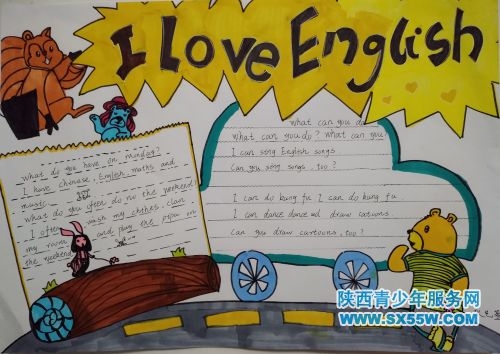 I Love English
What do you have on mindday?
I have chinese, English maths and
music.
What do you often do no the weekend
I often wash my clothes, clan
my room and play the pipa on
the weekend
what can you do
What can you do? What can you
I can song English songs.
Can you song songs, too?
I can do kung fu I can do kung fu
I can dance dance and draw catoons.
Can you draw cartoons, too?
陕西青少年服务网
www.sx55w.com